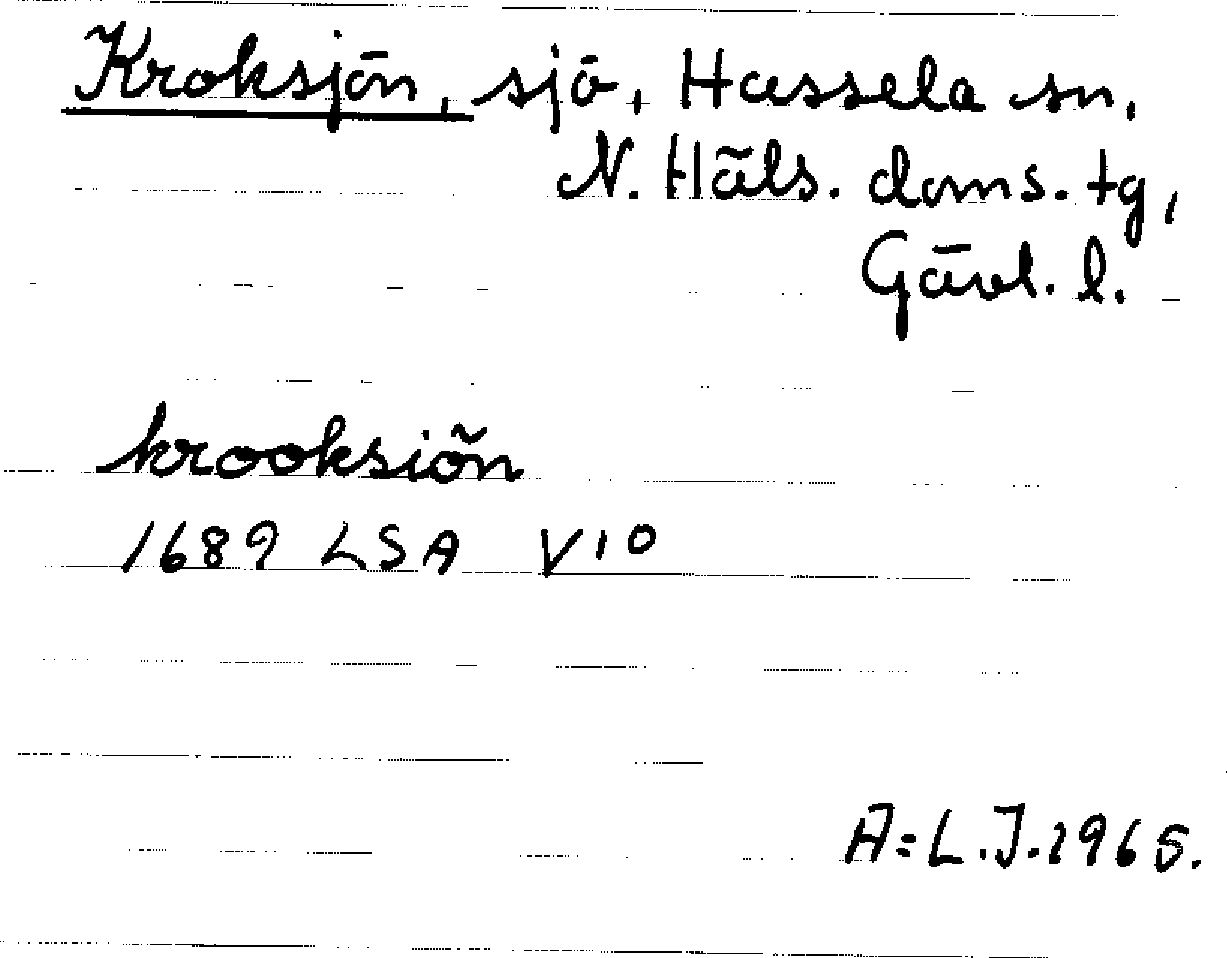 Kroksjön, sjö, Hassela sn,
N. Häls. doms. tg,
Gävl. l.
krooksiön
1689 LSA V10
A:L.J. 1965.